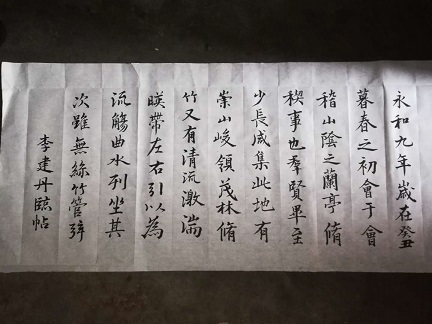 永和九年歲在癸丑
暮春之初會于會
稽山陰之蘭亭脩
稧事也羣賢畢至
少長咸集此地有
崇山峻領茂林脩
竹又有清流激湍
暎帶左右引以為
流觴曲水列坐其
次雖無絲竹管弦
李建丹臨帖